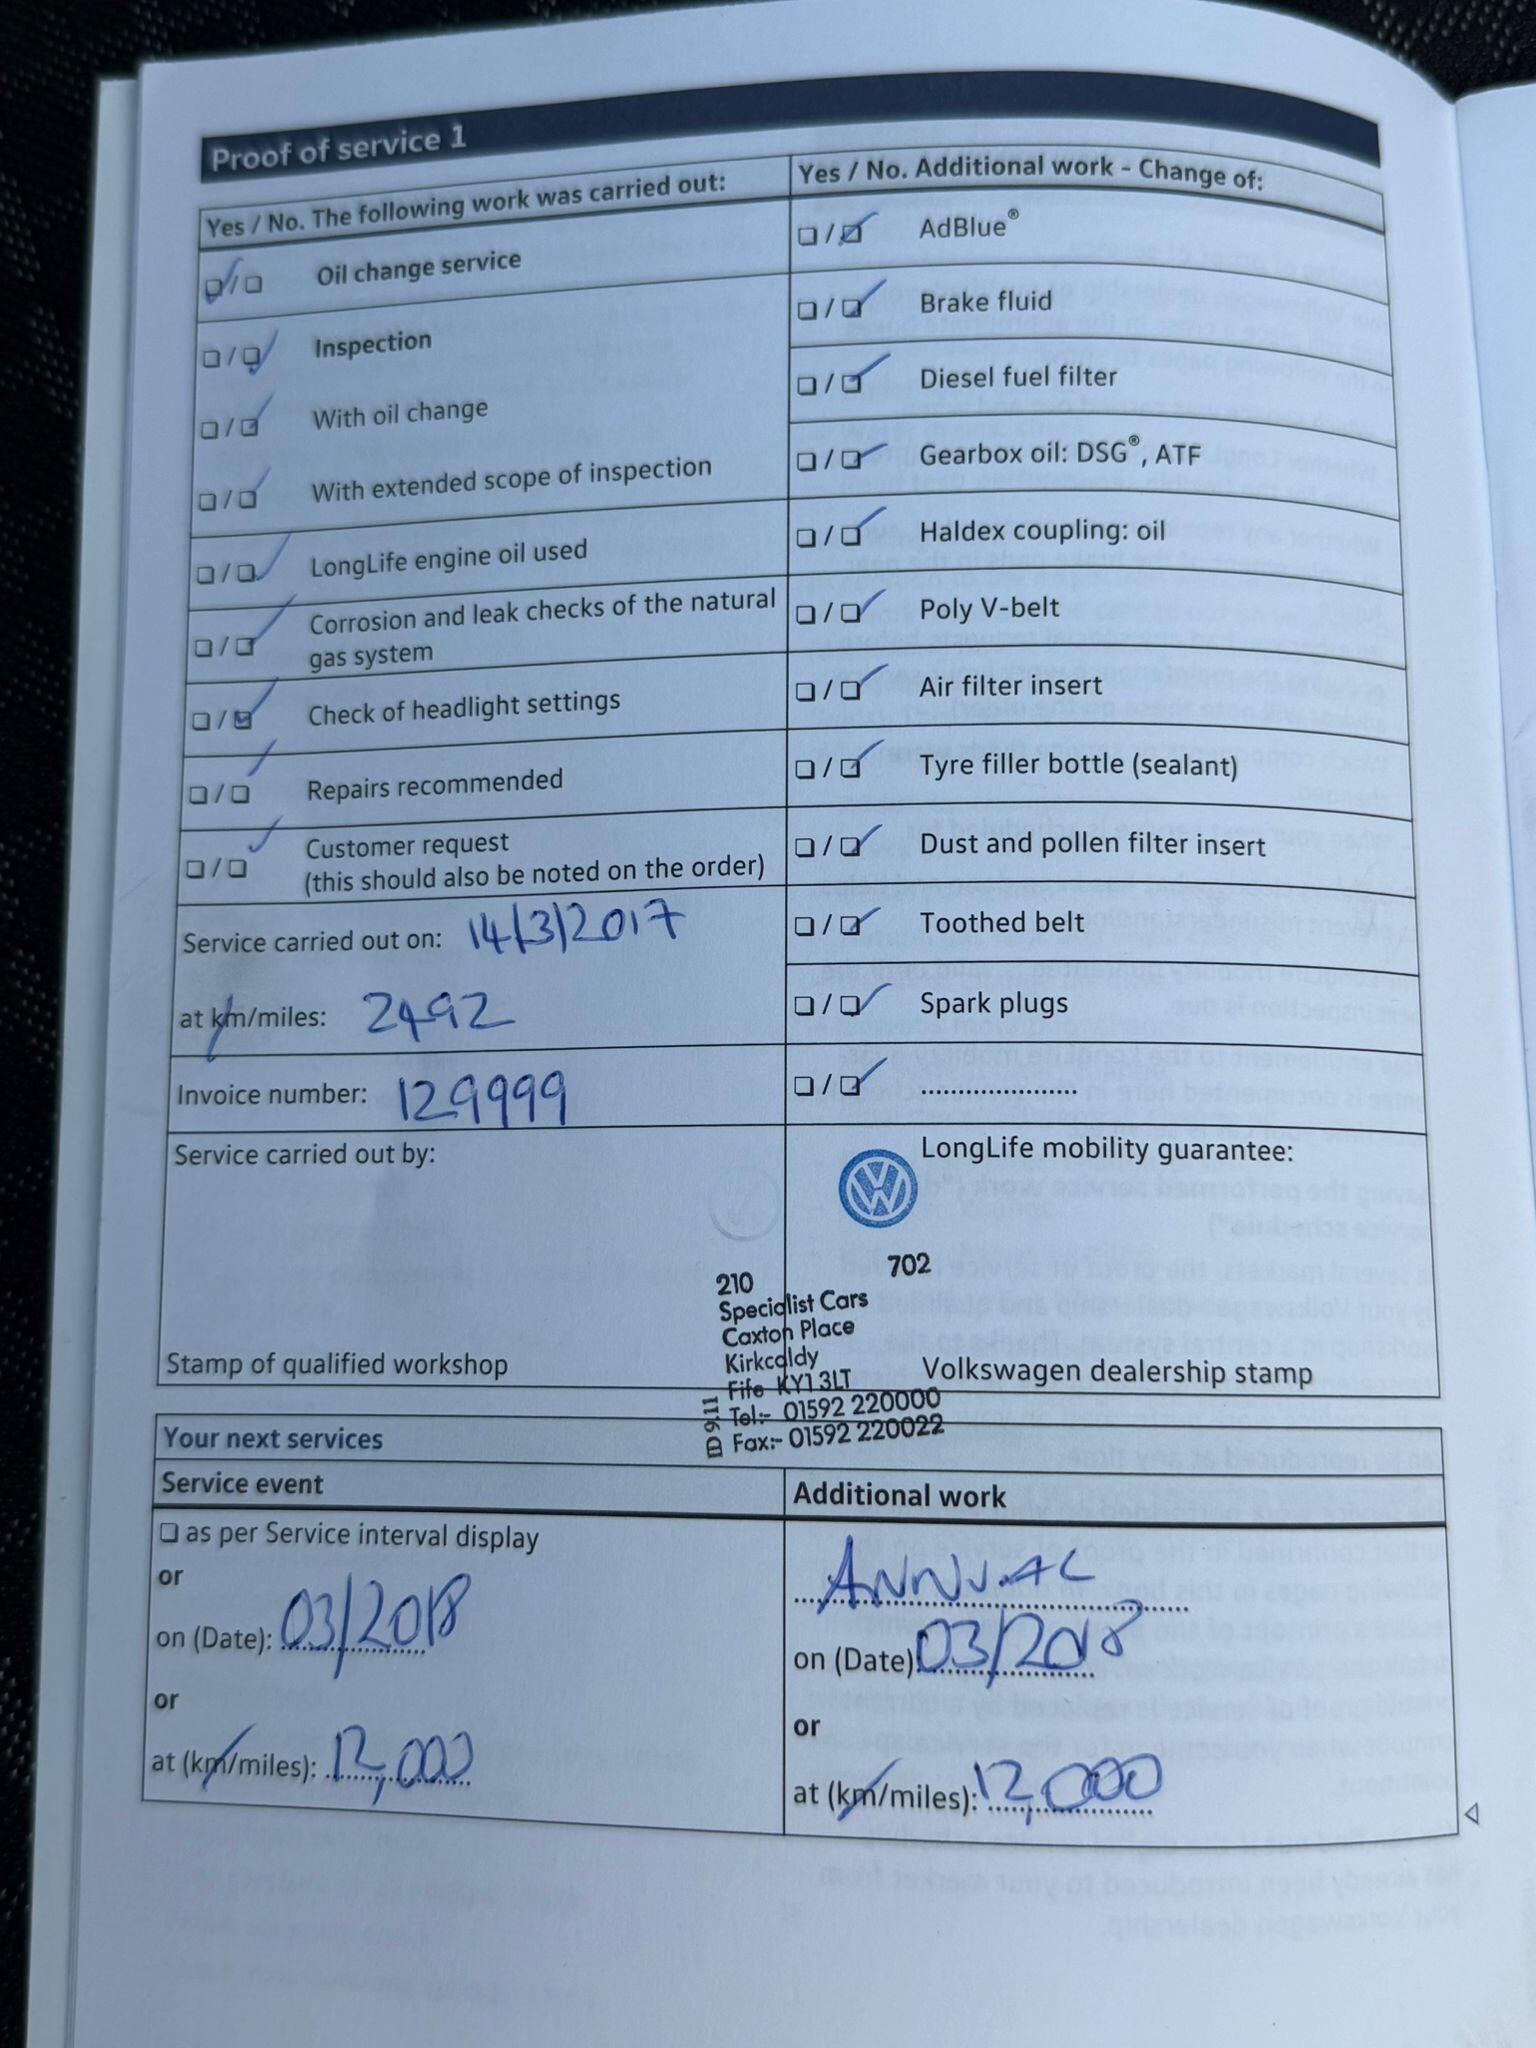 Proof of service 1
Yes / No. The following work was carried out:
☑ / ☐ Oil change service
☐ / ☑ Inspection
☐ / ☑ With oil change
☐ / ☑ With extended scope of inspection
☐ / ☑ LongLife engine oil used
☐ / ☑ Corrosion and leak checks of the natural
gas system
☐ / ☑ Check of headlight settings
☐ / ☑ Repairs recommended
☐ / ☑ Customer request
(this should also be noted on the order)
Service carried out on: 14/3/2017
at km/miles: 2492
Invoice number: 129999
Service carried out by:
Stamp of qualified workshop
Yes / No. Additional work - Change of:
☐ / ☑ AdBlue®
☐ / ☑ Brake fluid
☐ / ☑ Diesel fuel filter
☐ / ☑ Gearbox oil: DSG®, ATF
☐ / ☑ Haldex coupling: oil
☐ / ☑ Poly V-belt
☐ / ☑ Air filter insert
☐ / ☑ Tyre filler bottle (sealant)
☐ / ☑ Dust and pollen filter insert
☐ / ☑ Toothed belt
☐ / ☑ Spark plugs
☐ / ☑ ....................
LongLife mobility guarantee:
210 702
Specialist Cars
Caxton Place
Kirkcaldy
Fife KY1 3LT
Tel:- 01592 220000
Fax:- 01592 220022
Volkswagen dealership stamp
Your next services
Service event
☐ as per Service interval display
or
on (Date): 03/2018
or
at (km/miles): 12,000
Additional work
ANNUAL
on (Date) 03/2018
or
at (km/miles): 12,000